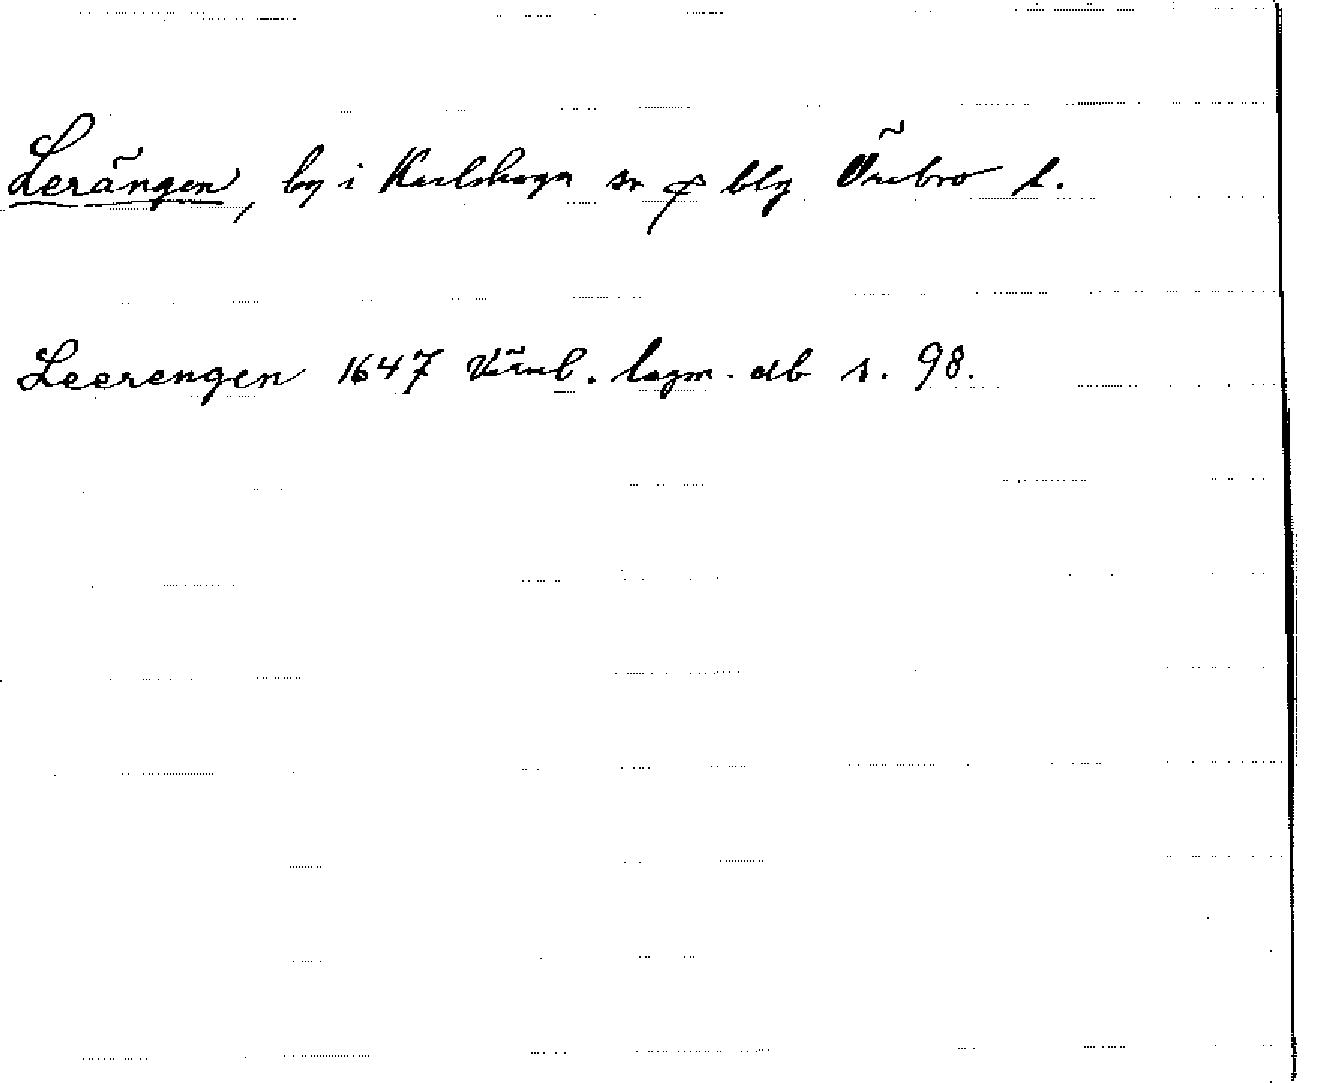 Lerängen, by i Karlskoga sn o blg Örebro l.
Leerengen 1647 Värml. lagm. db s. 98.